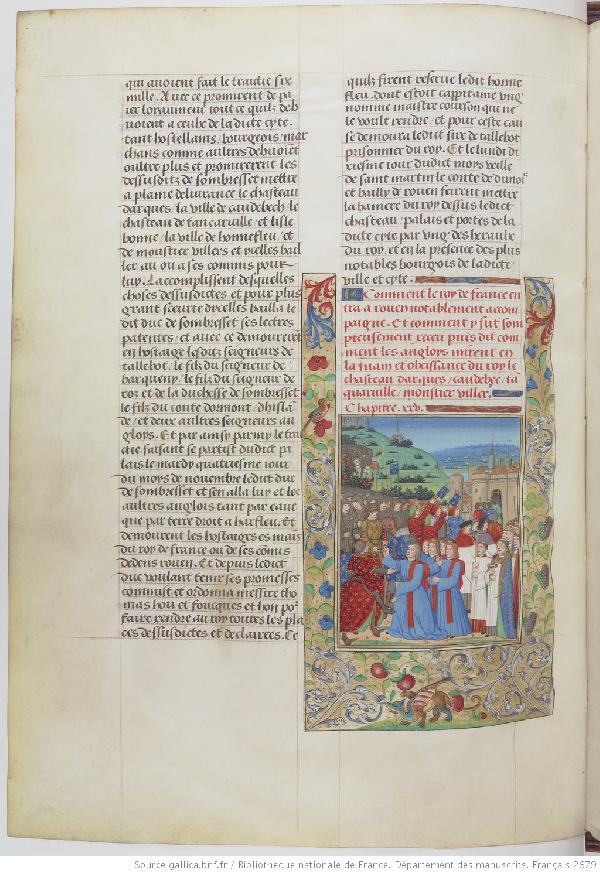 qui auoient fait le traictie six
mille. Auec ce promirent de pa
ier loyaument tout ce quilz deb
uoient a ceulx de ladicte cyte
tant hostellains / bourgeois / mar
chans comme aultres debuoient
oultre plus et promirent les
dessusditz de sombresset mettre
a plaine deliurance le chasteau
darques / la ville de caudebech / le
chasteau de tancaruille / et lisle
bonne / la ville de honnefleu / et
de moustier villers et ycelles bail
ler au ou a ses commis pour
luy. Laccomplissent desquelles
choses dessusdictes et pour plus
grant sceurte dycelles bailla le
dit duc de sombresset ses lectres
patentes / et auec ce demourerent
en hostaige lesditz seigneurs de
tallebot / le filz du seigneur de
bargueny / le filz du seigneur de
roz et de la duchesse de sombresset
le filz du conte dormont / dhislan
de / et deux aultres seigneurs an
gloys. Et par ainsy parmy le trai
tie faisant se partist dudict pa
lais le mardy quatriesme iour
du moys de nouembre ledit duc
de sombresset et sen alla luy et les
aultres anglois tant par eaue
que par terre droit a harfleu. Et
demourent les hostaiges es mais
du roy de france ou de ses comis
dedens rouen. Et depuis ledict
duc voulant tenir ses promesses
commist et ordonna messire tho
mas hou et foucques et hon por
faire rendre au roy toutes les pla
ces dessusdictes et declairees. Ce
quilz firent reserue ledit honne
fleu / dont estoit cappitaine vng
nomme maistre courson qui ne
le volt rendre / et pour ceste cau
se demoura ledit sire de tallebot
prisonnier du roy. Et le lundi di
xiesme iour dudict moys veille
de saint martin le conte de dunoys
et bailly de rouen feirent mettre
la baniere du roy dessus ledict
chasteau / palais et portes de la
dicte cyte par vng des heraulx
du roy / et en la presence des plus
notables bourgois de ladicte
ville et cyte.
Comment le roy de france en
tra a rouen notablement accom
paigne. Et comment y fut som
ptueusement receu puis dit com
ment les angloys mirent en
la main et obeissance du roy le
chasteau darques / caudebec / ta
quaruille / monstier viller.
Chapitre. xxv.
Source gallica.bnf.fr / Bibliothèque nationale de France. Département des manuscrits. Français 2679